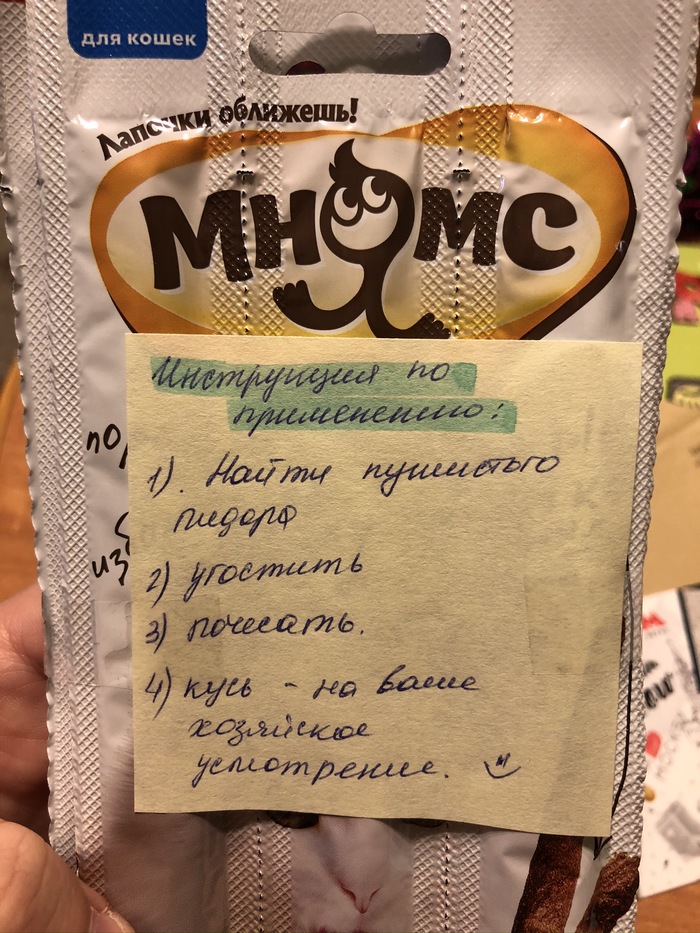 для кошек
Лапочки оближешь!
МНЯМС
Инструкция по
применению:
1). Найти пушистого
пидора
2) угостить
3) почесать.
4) кусь - на ваше
хозяйское
усмотрение.
из